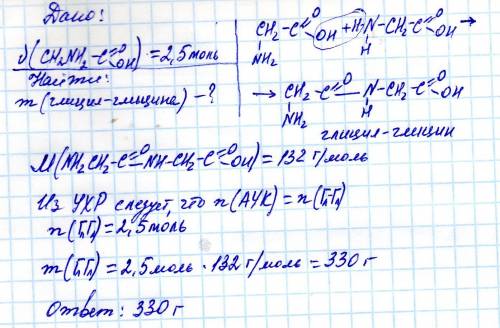 Дано:
ν(CH₂NH₂-C(=O)OH) = 2,5 моль
Найти:
m(глицил-глицина) - ?
CH₂-C(=O)OH + H-N-CH₂-C(=O)-OH →
NH₂ H
→ CH₂-C(=O)-N-CH₂-C(=O)-OH
NH₂ H
глицил-глицин
M(NH₂CH₂-C(=O)-NH-CH₂-C(=O)OH) = 132 г/моль
Из УХР следует, что n(АУК) = n(ГлГл)
n(ГлГл) = 2,5 моль
m(ГлГл) = 2,5 моль · 132 г/моль = 330 г
Ответ: 330 г